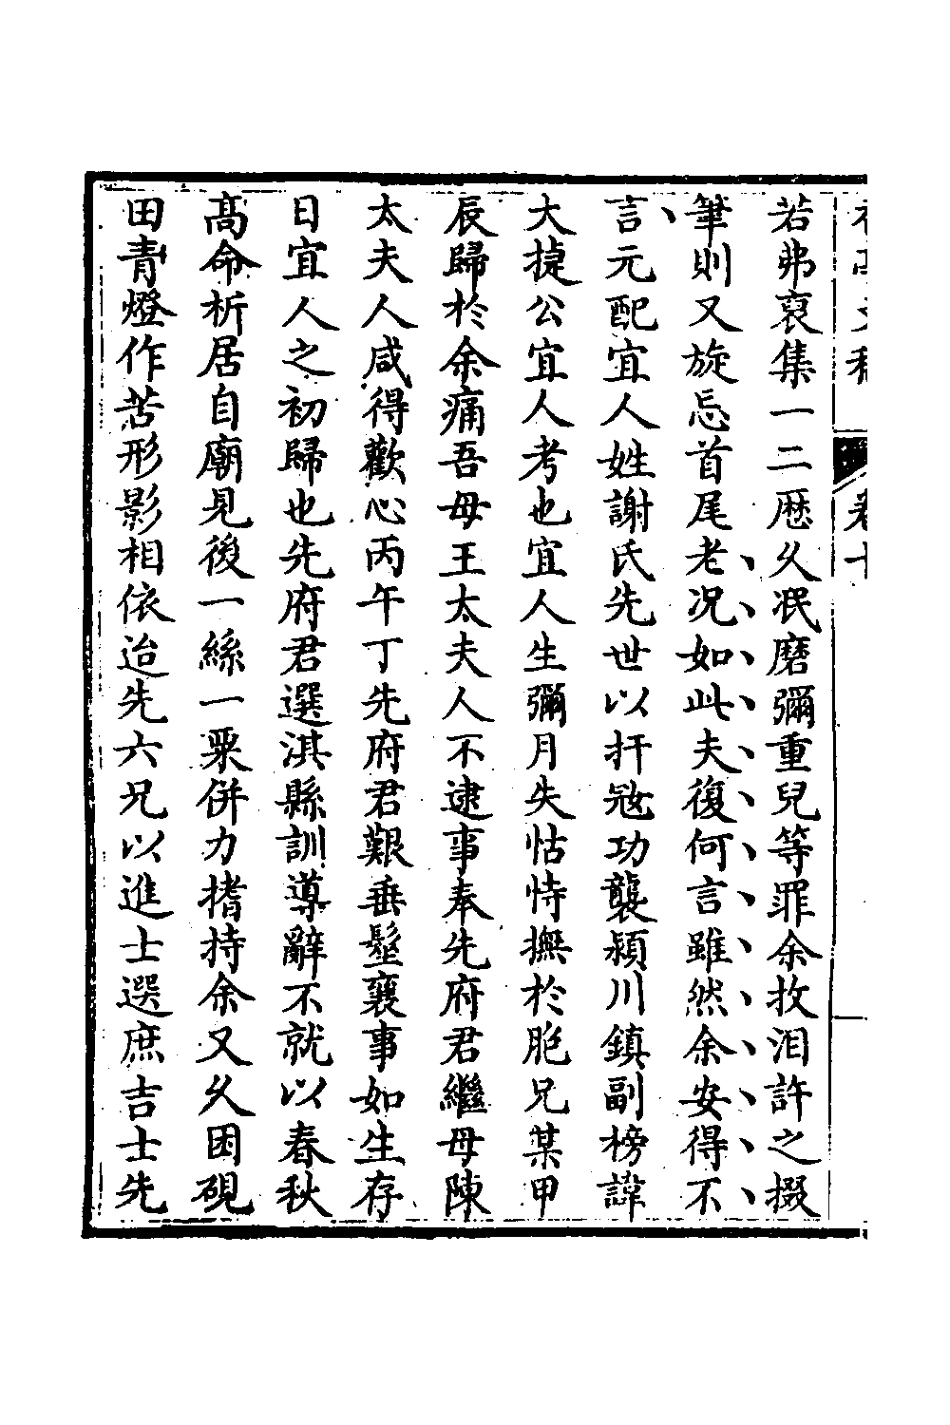 若弗裒集一二歴久泯磨彌重兒等罪余抆泪許之掇
筆則又旋忘首尾老况如此夫復何言雖然余安得不
言元配宜人姓謝氏先世以扞㓂功襲潁川鎮副榜諱
大捷公宜人考也宜人生彌月失怙恃撫於胞兄某甲
辰歸於余痛吾母王太夫人不逮事奉先府君繼母陳
太夫人咸得歡心丙午丁先府君艱垂髽襄事如生存
日宜人之初歸也先府君選淇縣訓導辭不就以春秋
高命析居自廟見後一絲一粟併力搘持余又久困硯
田青燈作苦形影相依迨先六兄以進士選庶吉士先